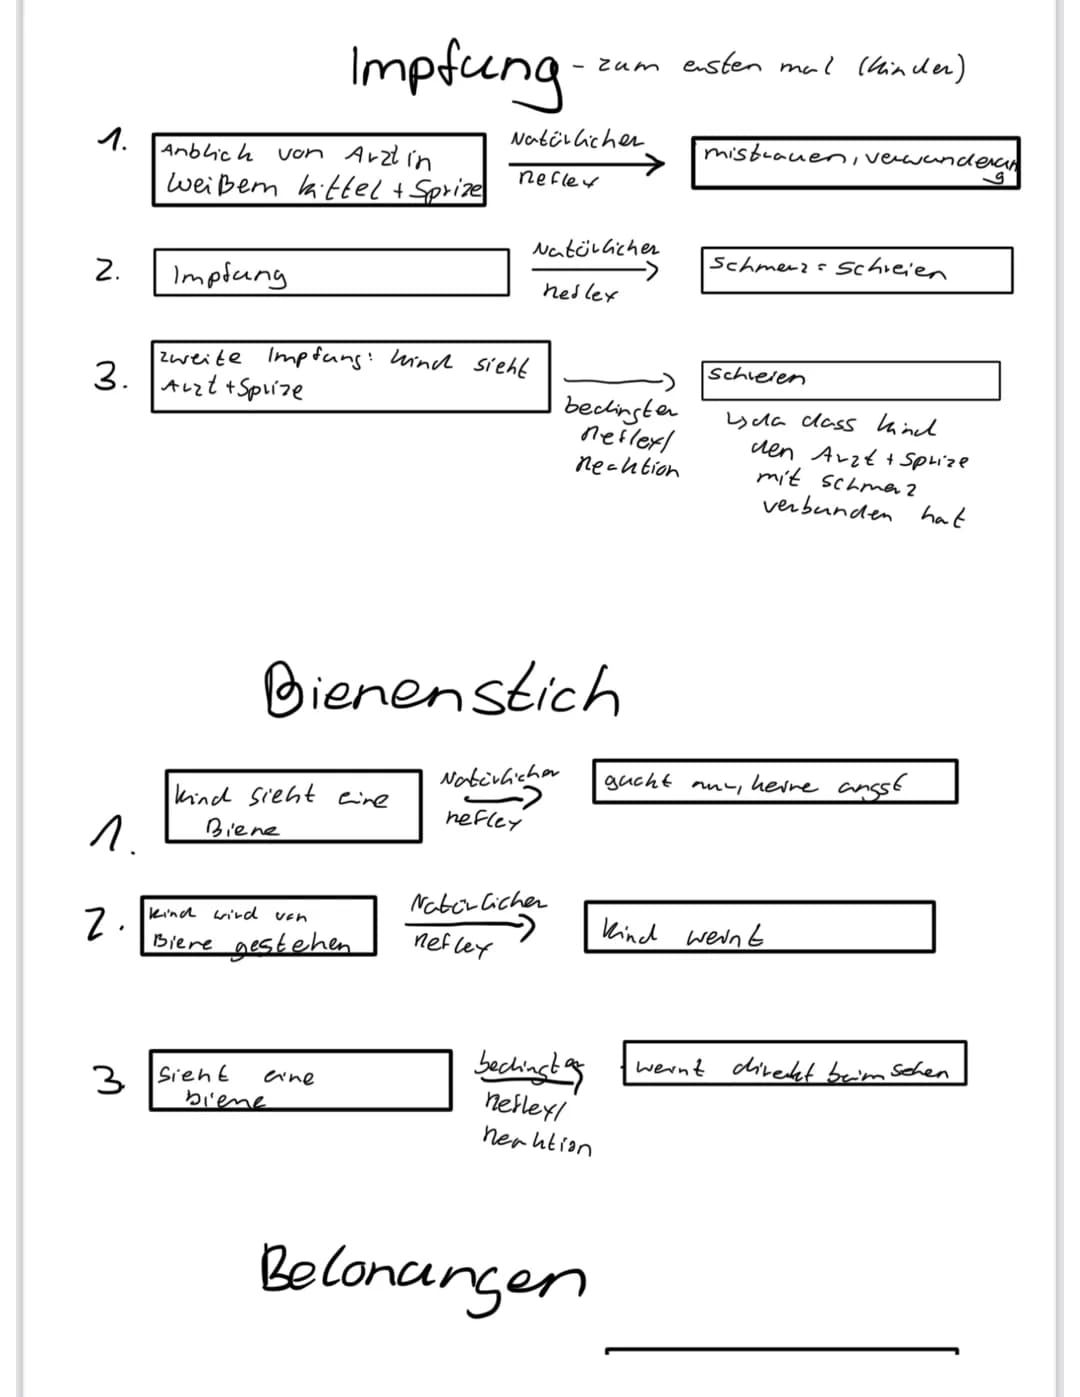 Impfung - zum ersten mal (Kinder)
1. Anblick von Arzt in
weißem kittel + Sprize
Natürlicher
reflex
misstrauen, verwunderung
2. Impfung
Natürlicher
reflex
Schmerz = Schreien
3. zweite Impfung: kind sieht
Arzt + Sprize
bedingter
reflex/
reaktion
schreien
↳ da dass kind
den Arzt + Sprize
mit schmerz
verbunden hat
Bienenstich
1. kind sieht eine
Biene
Natürlicher
reflex
guckt nur, keine angst
2. kind wird von
Biene gestehen
Natürlicher
reflex
kind weint
3 sieht eine
biene
bedingter
reflex/
reaktion
weint direkt beim sehen
Belonungen